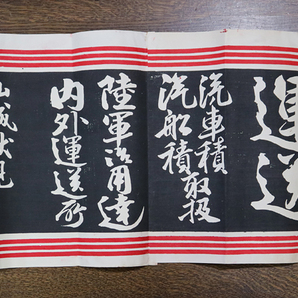 運送
汽車積
汽船積取扱
陸軍御用達
内外運送所
山城伏見